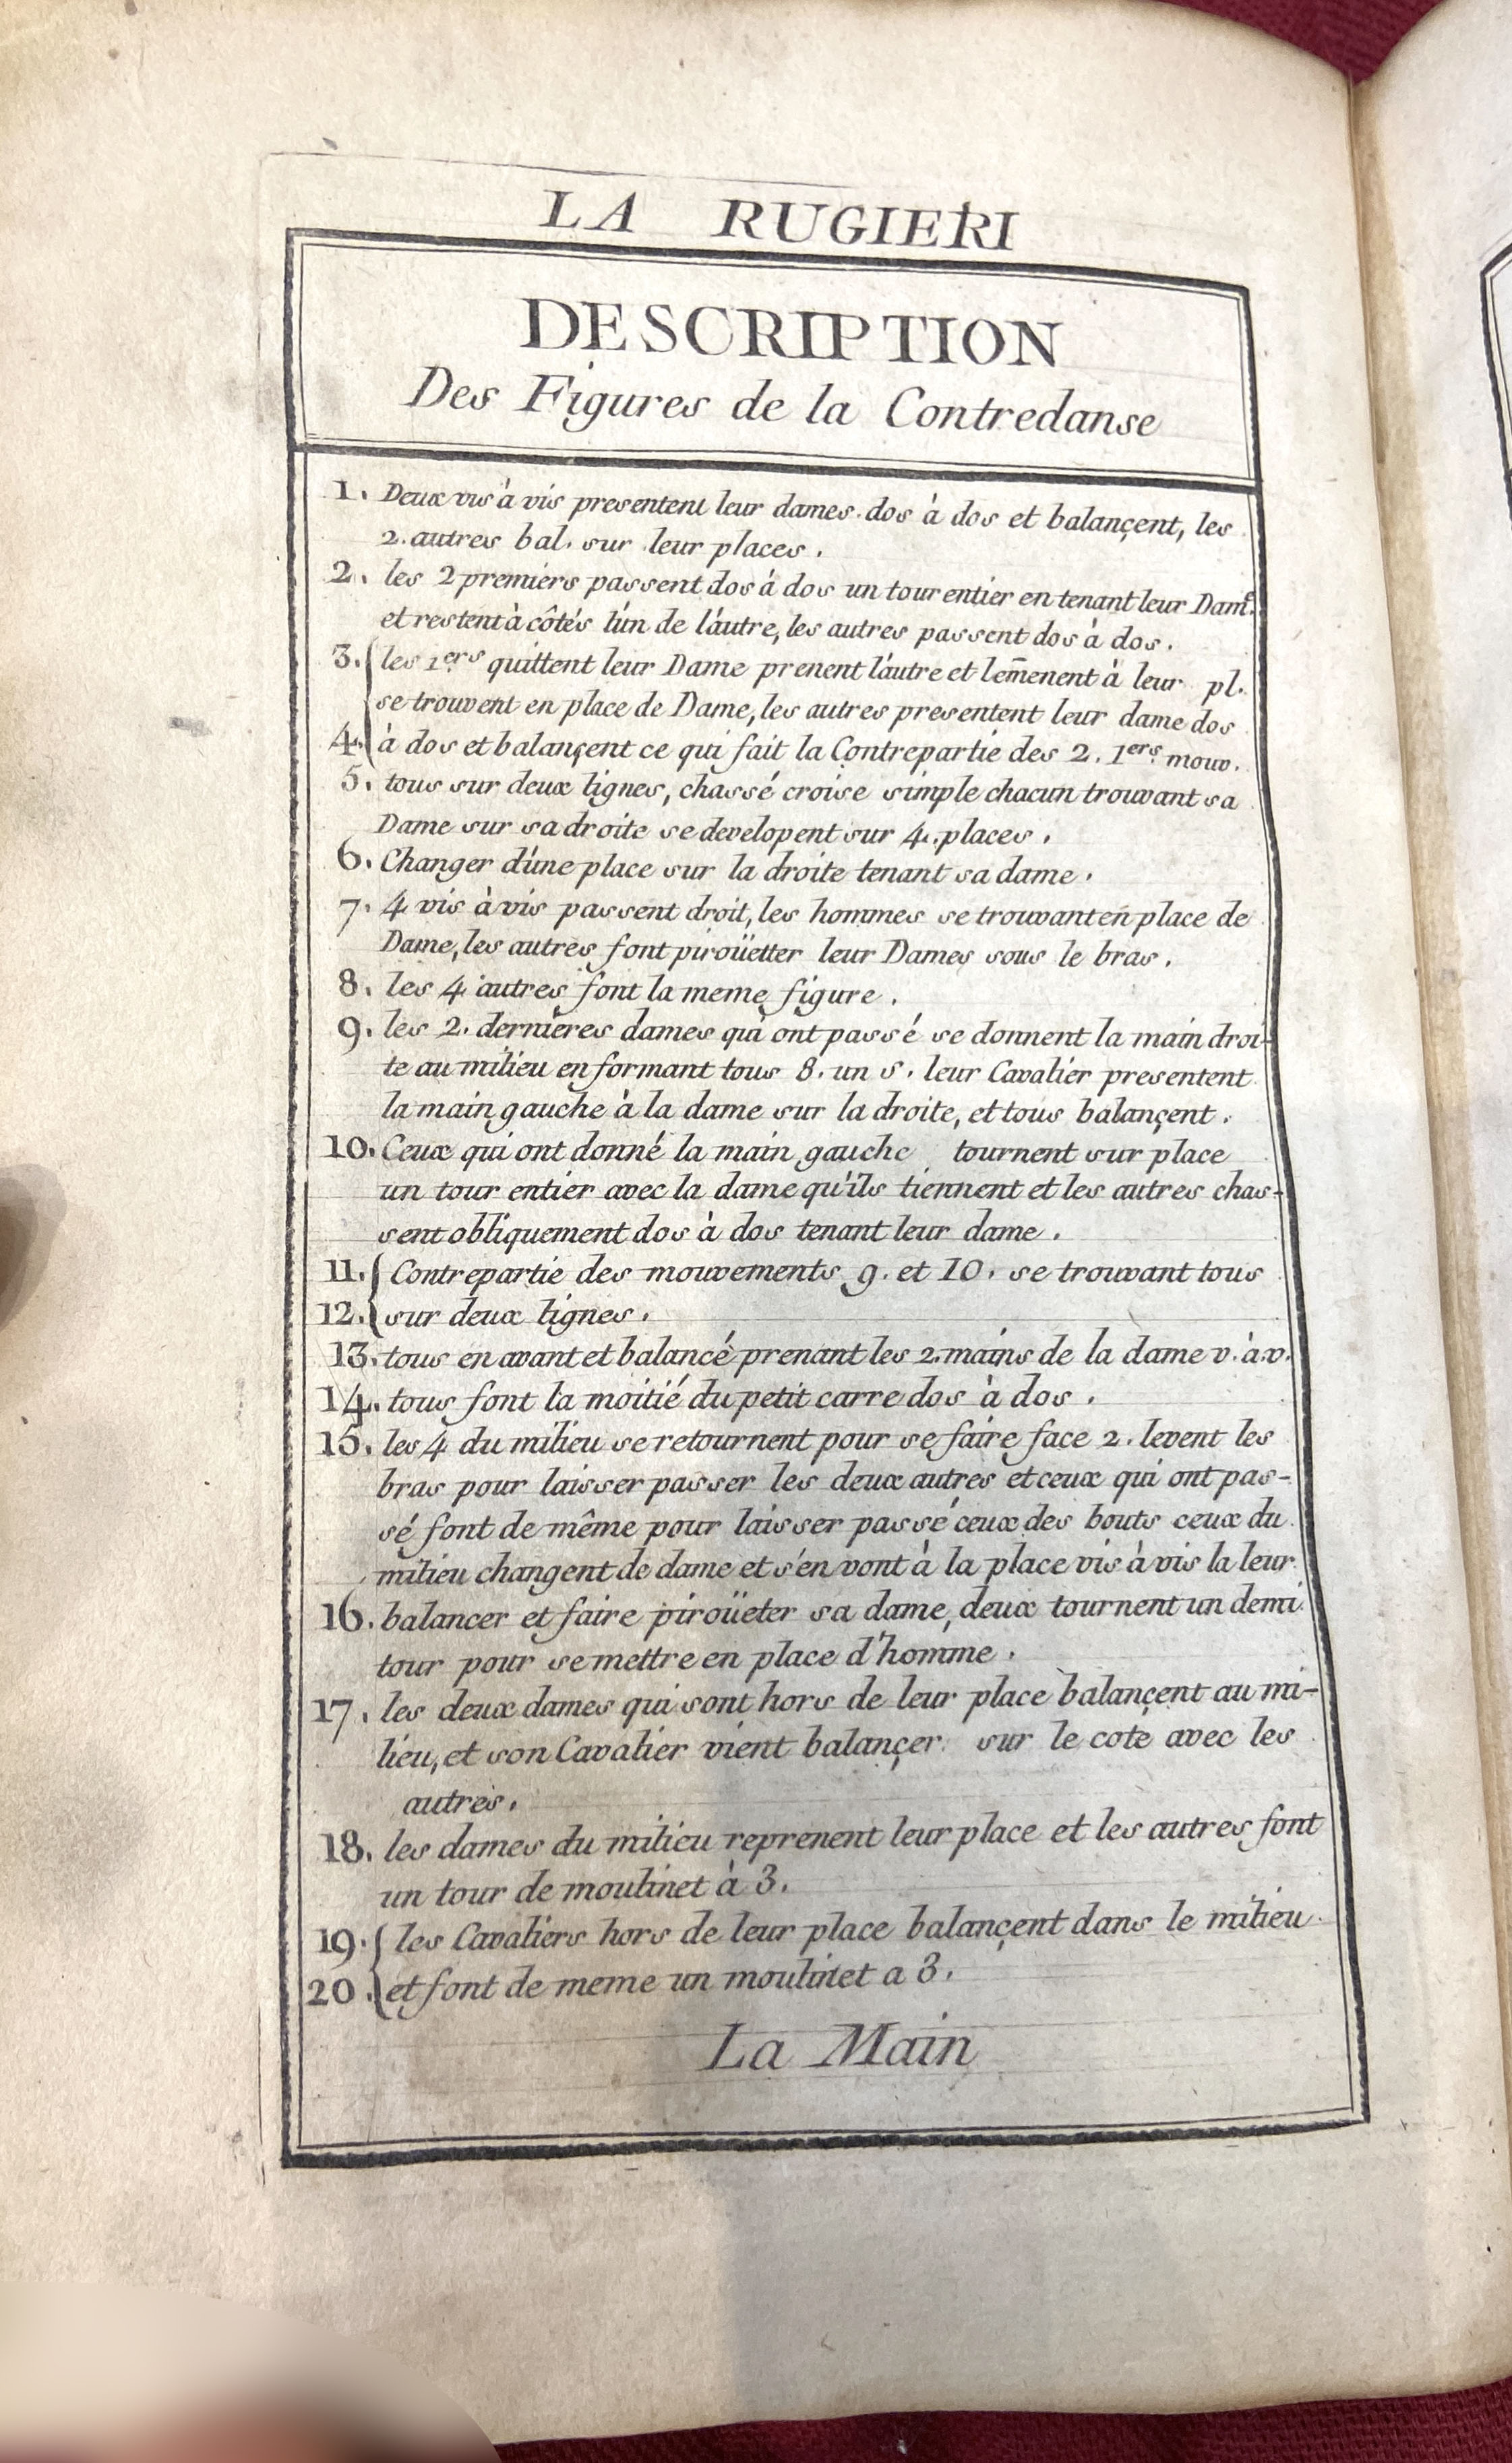 LA RUGIERI
DESCRIPTION
Des Figures de la Contredanse
1. Deux vis à vis presentent leur dames dos à dos et balançent, les
2. autres bal. sur leur places.
2. les 2 premiers passent dos à dos un tour entier en tenant leur Dame.
et restent à côtés l'un de l'autre, les autres passent dos à dos.
3. les 1ers quittent leur Dame prenent l'autre et lem̄enent à leur pl.
se trouvent en place de Dame, les autres presentent leur dame dos
4. à dos et balançent ce qui fait la Contrepartie des 2. 1ers mouv.
5. tous sur deux lignes, chassé croise simple chacun trouvant sa
Dame sur sa droite se developent sur 4. places.
6. Changer d'une place sur la droite tenant sa dame.
7. 4 vis à vis passent droit, les hommes se trouvant en place de
Dame, les autres font piroüetter leur Dames sous le bras.
8. les 4 autres font la meme figure.
9. les 2. dernieres dames qui ont passé se donnent la main droi-
te au milieu en formant tous 8. un S. leur Cavalier presentent
la main gauche à la dame sur la droite, et tous balançent.
10. Ceux qui ont donné la main gauche tournent sur place
un tour entier avec la dame qu'ils tiennent et les autres chas-
sent obliquement dos à dos tenant leur dame.
11. Contrepartie des mouvements 9. et 10. se trouvant tous
12. sur deux lignes.
13. tous en avant et balancé prenant les 2. mains de la dame v. à. v.
14. tous font la moitié du petit carre dos à dos.
15. les 4 du milieu se retournent pour se faire face 2. levent les
bras pour laisser passer les deux autres et ceux qui ont pas-
sé font de même pour laisser passé ceux des bouts ceux du
milieu changent de dame et s'en vont à la place vis à vis la leur.
16. balancer et faire piroüeter sa dame, deux tournent un demi
tour pour se mettre en place d'homme.
17. les deux dames qui sont hors de leur place balançent au mi-
lieu, et son Cavalier vient balançer sur le cote avec les
autres.
18. les dames du milieu reprenent leur place et les autres font
un tour de moulinet à 3.
19. les Cavaliers hors de leur place balançent dans le milieu
20. et font de meme un moulinet a 3.
La Main